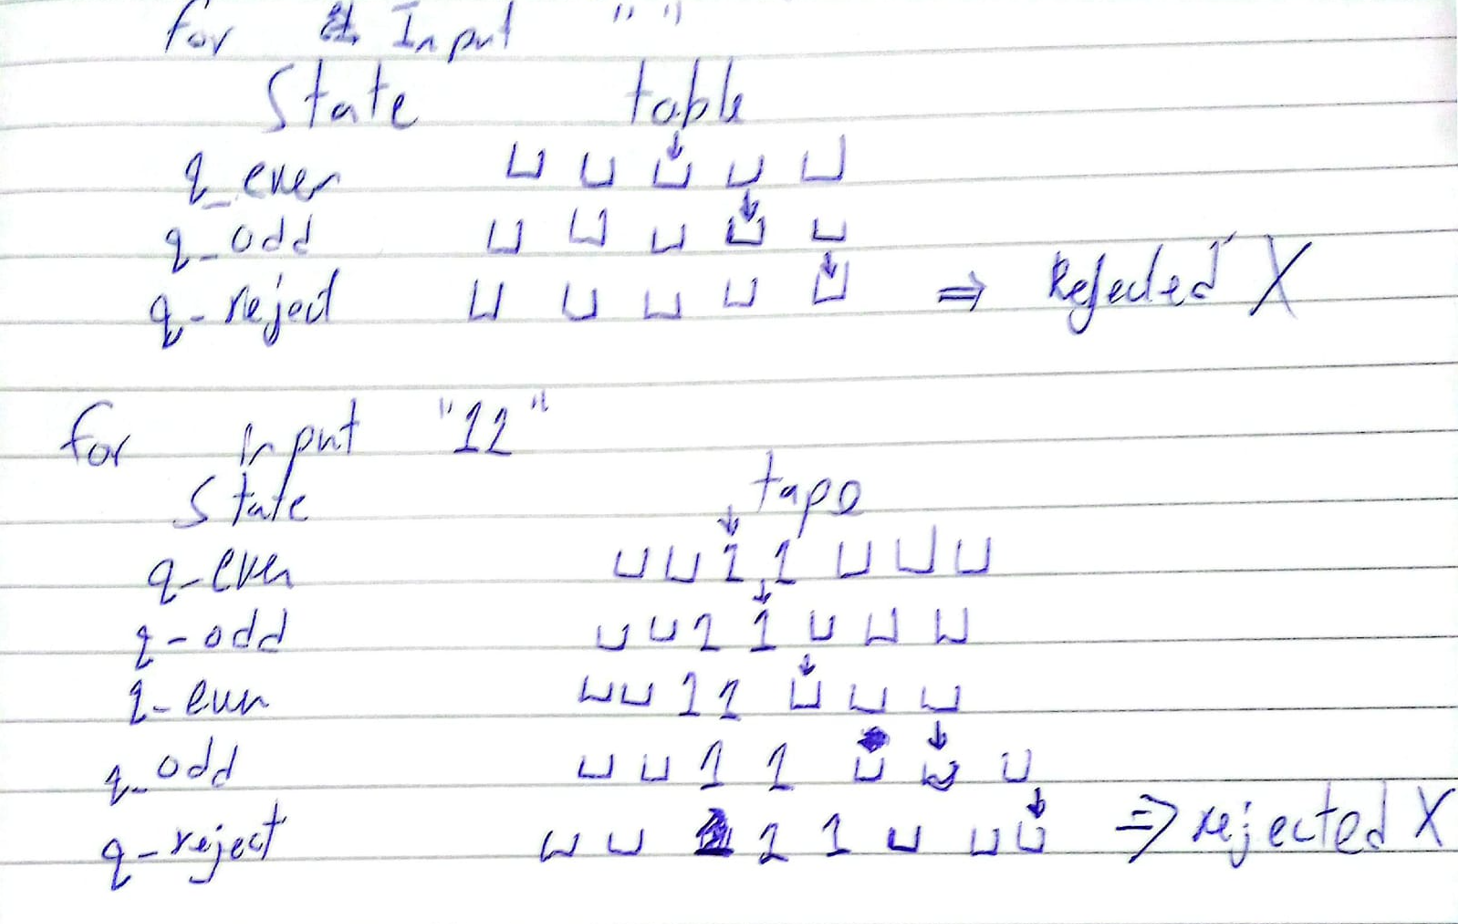 For Input " "
State table
q_even ⊔ ⊔ ⊔ ⊔ ⊔
q_odd ⊔ ⊔ ⊔ ⊔ ⊔
q-reject ⊔ ⊔ ⊔ ⊔ ⊔ ⇒ Rejected X
for input "11"
State tape
q-even ⊔ ⊔ 1 1 ⊔ ⊔ ⊔
q-odd ⊔ ⊔ 1 1 ⊔ ⊔ ⊔
q-even ⊔ ⊔ 1 1 ⊔ ⊔ ⊔
q_odd ⊔ ⊔ 1 1 ⊔ ⊔ ⊔
q-reject ⊔ ⊔ 1 1 ⊔ ⊔ ⊔ ⇒ rejected X